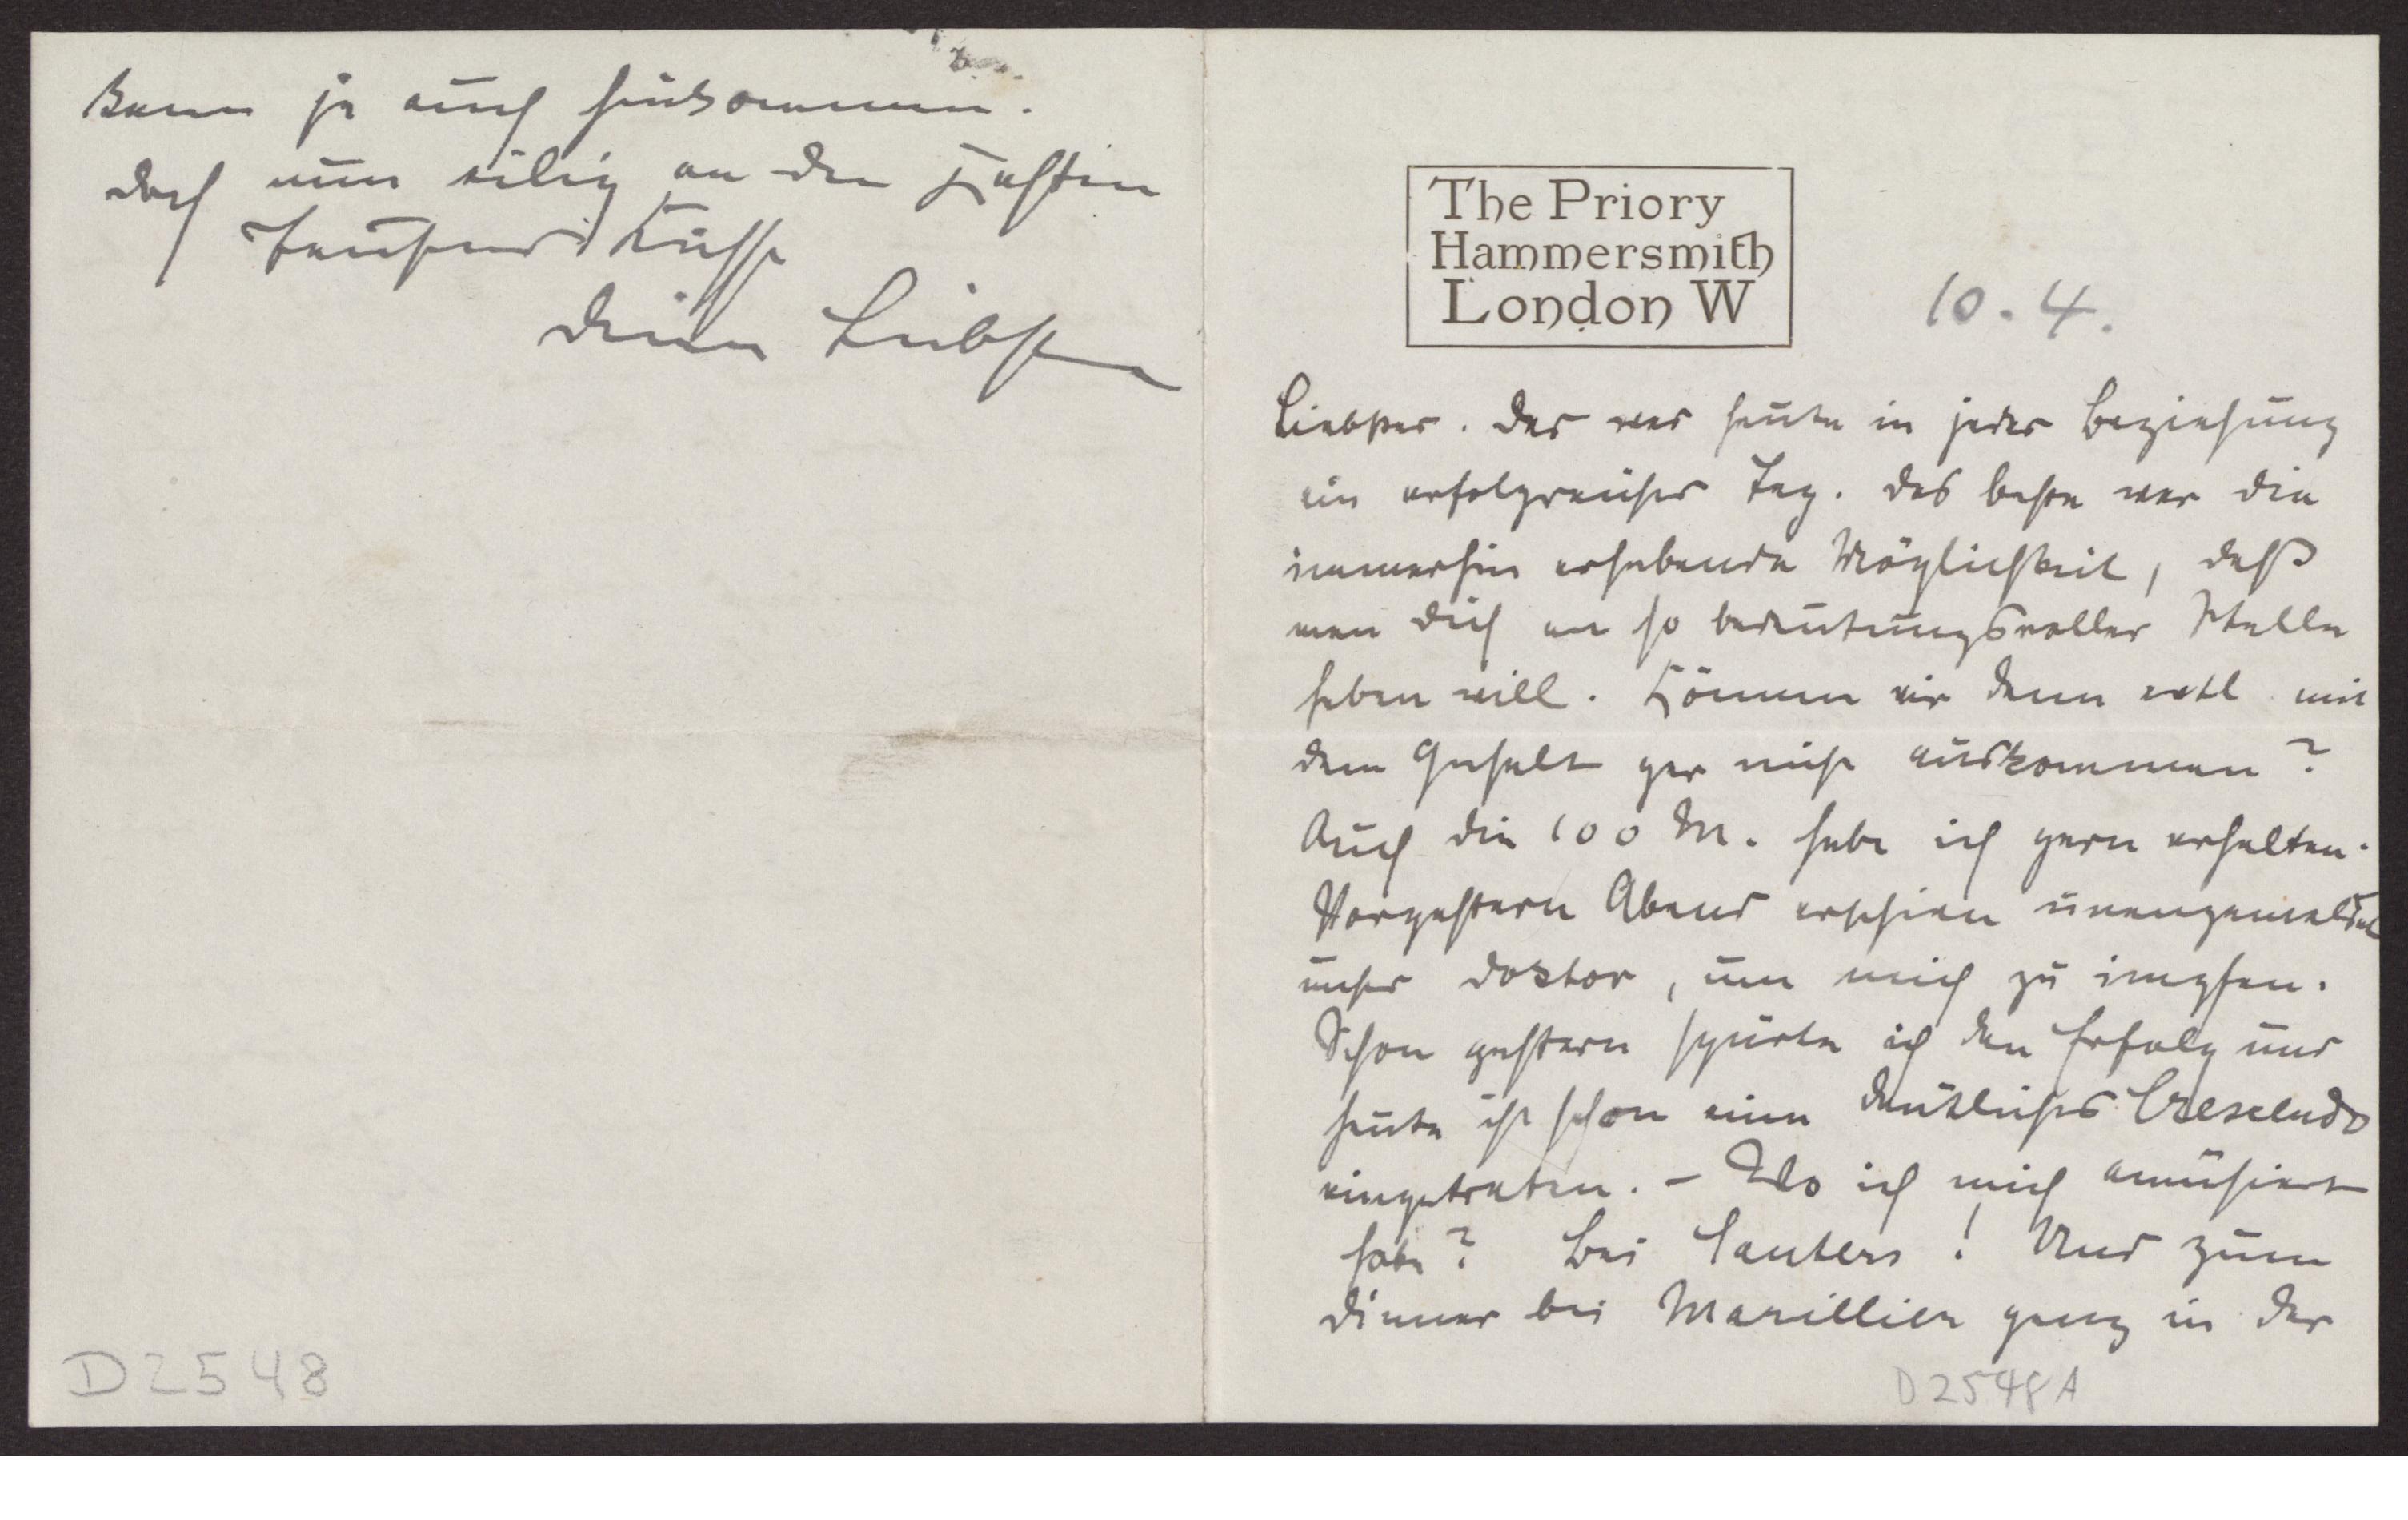 kann ja auch hinkommen.
doch nun eilig an den Kasten
Tausend Küsse
deine Liebste
D2548
The Priory
Hammersmith
London W
10.4.
Liebster. das war heute in jeder Beziehung
ein erfolgreicher Tag. das beste war die
immerhin erhebende Möglichkeit, daß
man dich an so bedeutungsvoller Stelle
haben will. Können wir denn wohl mit
dem Gehalt gar nicht auskommen?
Auch die 100 M. habe ich gern erhalten.
Vorgestern Abend erschien unangemeldet
unser Doktor, um mich zu impfen.
Schon gestern spürte ich den Erfolg und
heute ist schon ein deutliches Crescendo
eingetreten. – Wo ich mich amüsiert
habe? Bei Sauters! Und zum
dinner bei Marillier ganz in der
D2548A